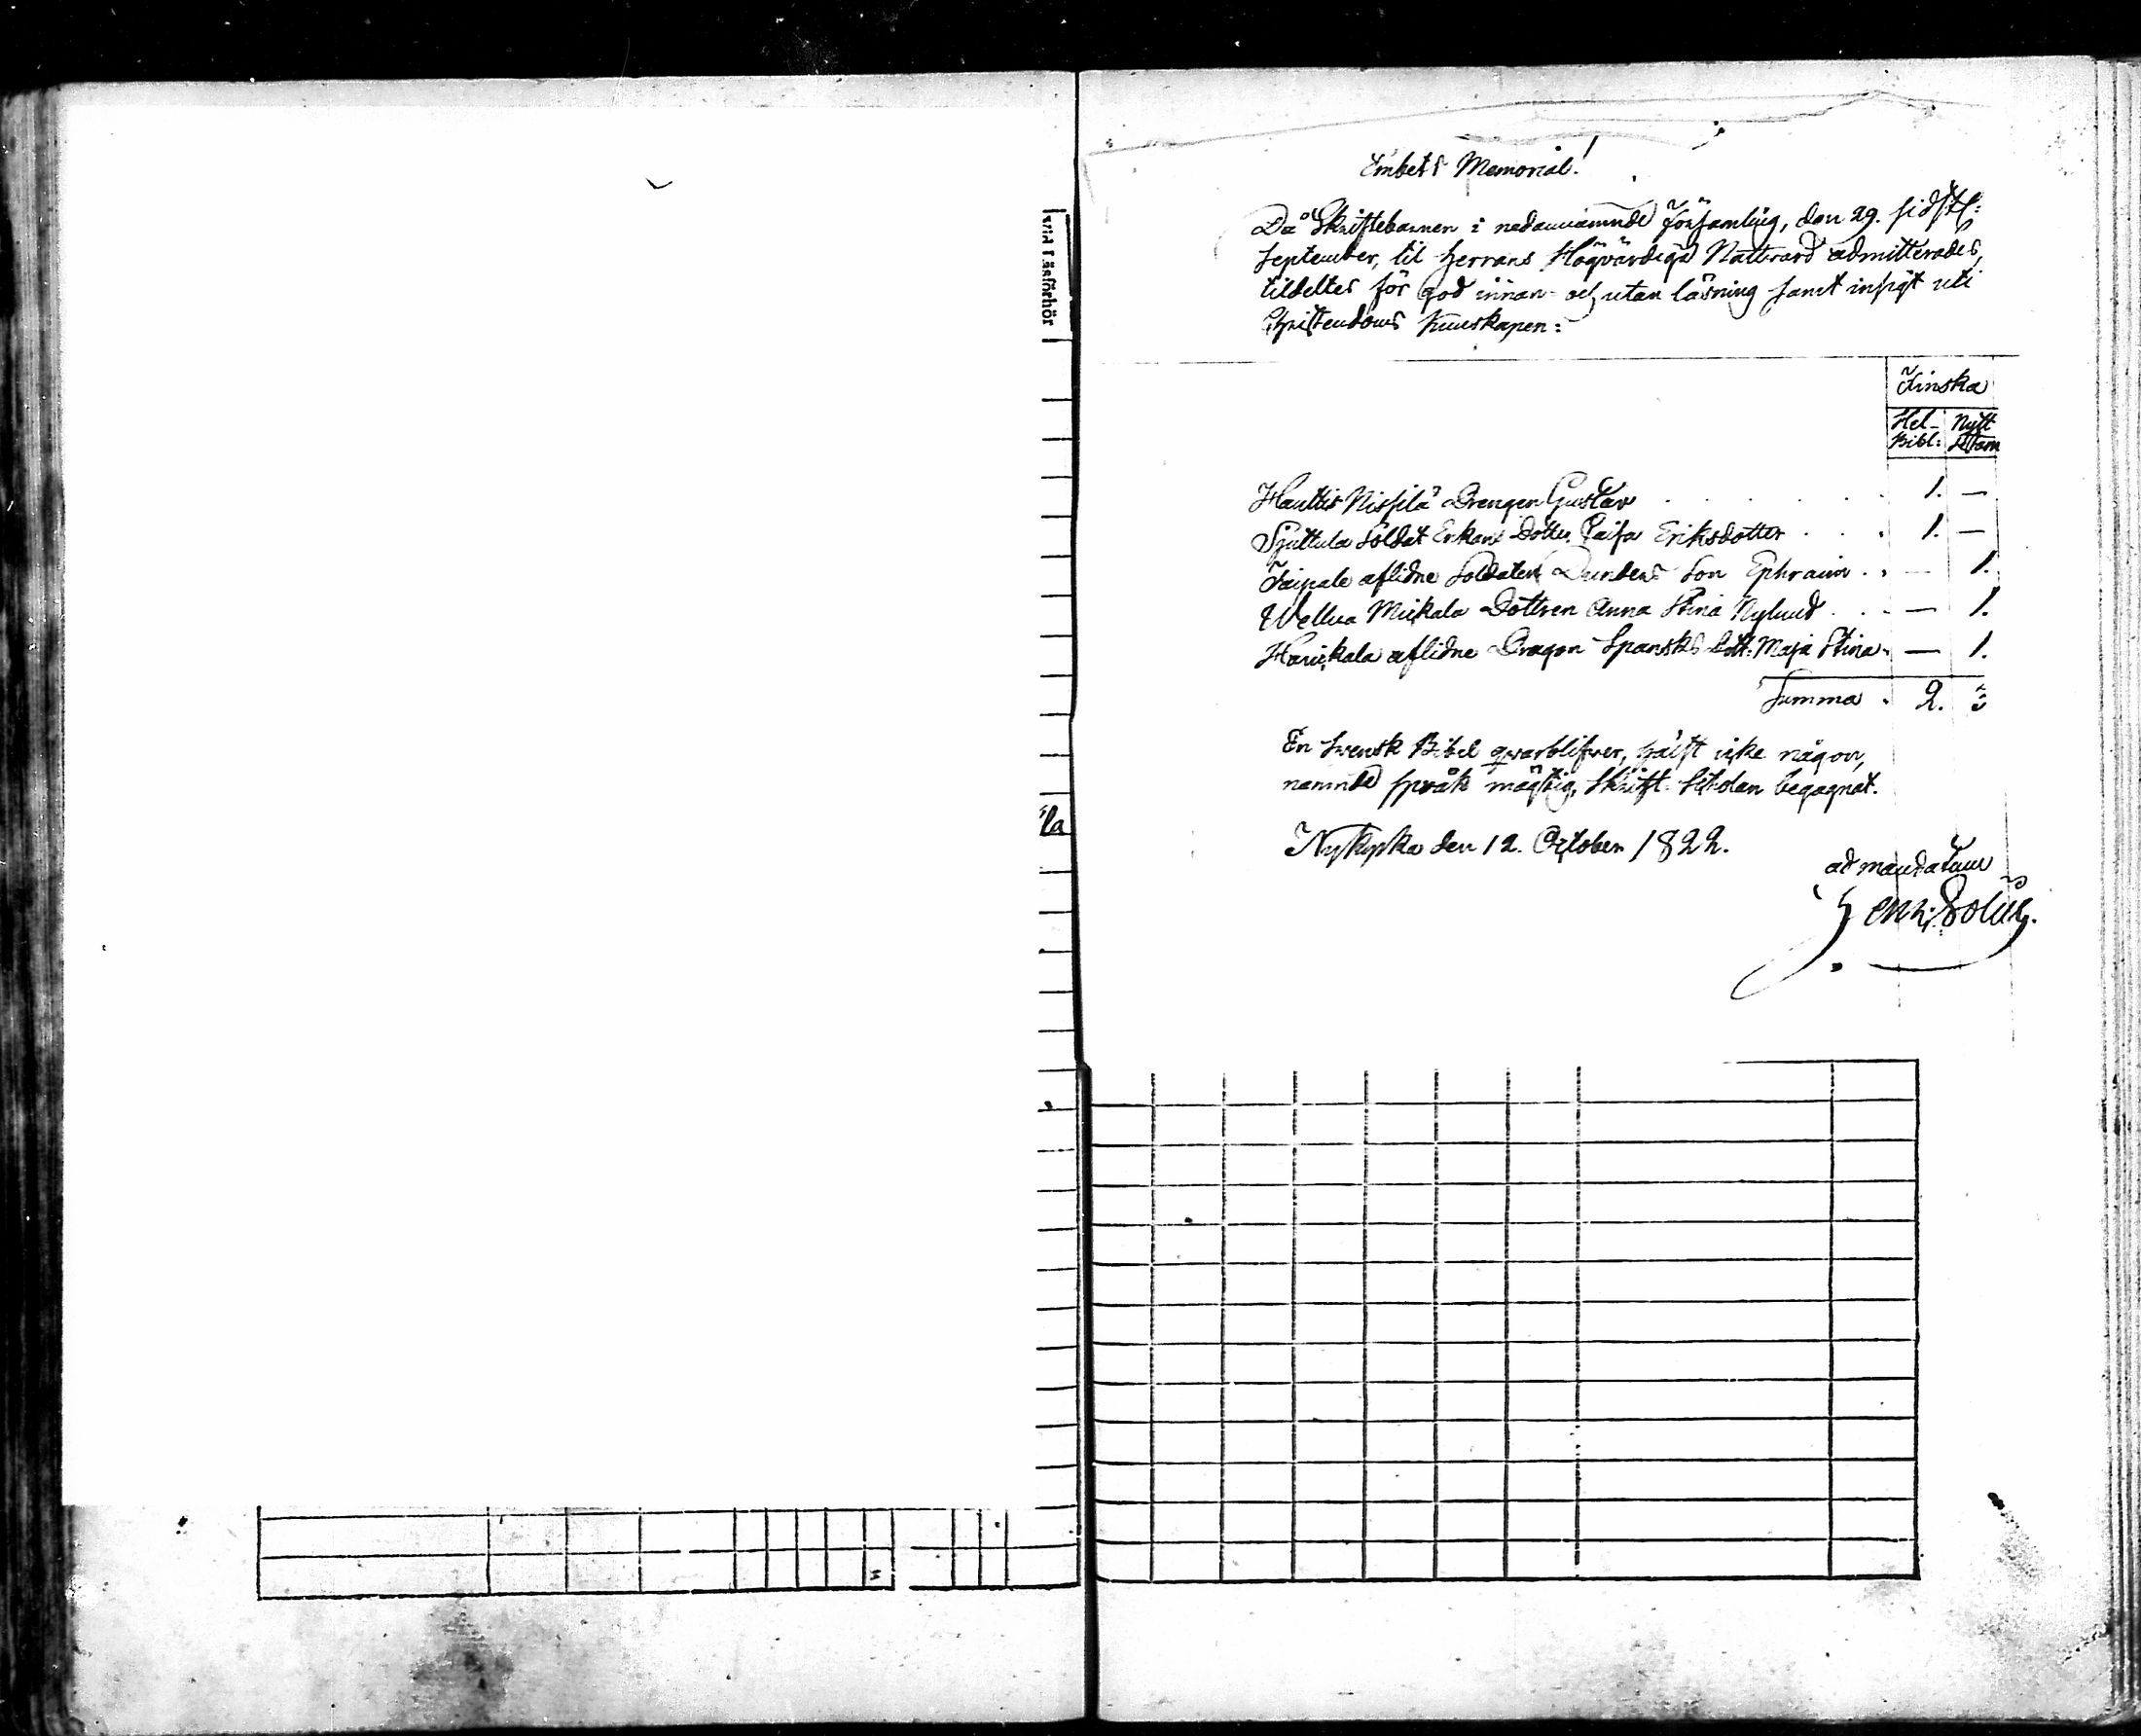 vid Läsförhör
la
Embets Memorial!
Då Skriftebarnen i nedannämnde Församling, den 29. sidstl:
September, til Herrans Högvärdiga Nattvard admitterades,
tildeltes för god innan- och utan läsning samt insigt uti
Christendoms kunskapen:
Finska
Hel- Nytt
Bibl: Testam
Hanttis Nissilä Drengen Gustav . . . . . . 1. —
Sjuttula Soldat Erkans Dotter Caisa Eriksdotter . . . 1. —
Taipale aflidne Soldaten Dunders Son Ephraim . . — 1.
Wellua Mickala Dottren Anna Stina Nylund . . . — 1.
Hanikala aflidne Dragon Spansks dott: Maja Stina . — 1.
Summa . 2. 3
En Swensk Bibel qvarblifver, hälst icke någon,
nämnde språk mägtig, Skrift-Skolan begagnat.
Nykyrka den 12. October 1822.
ad mandatum
Henr: